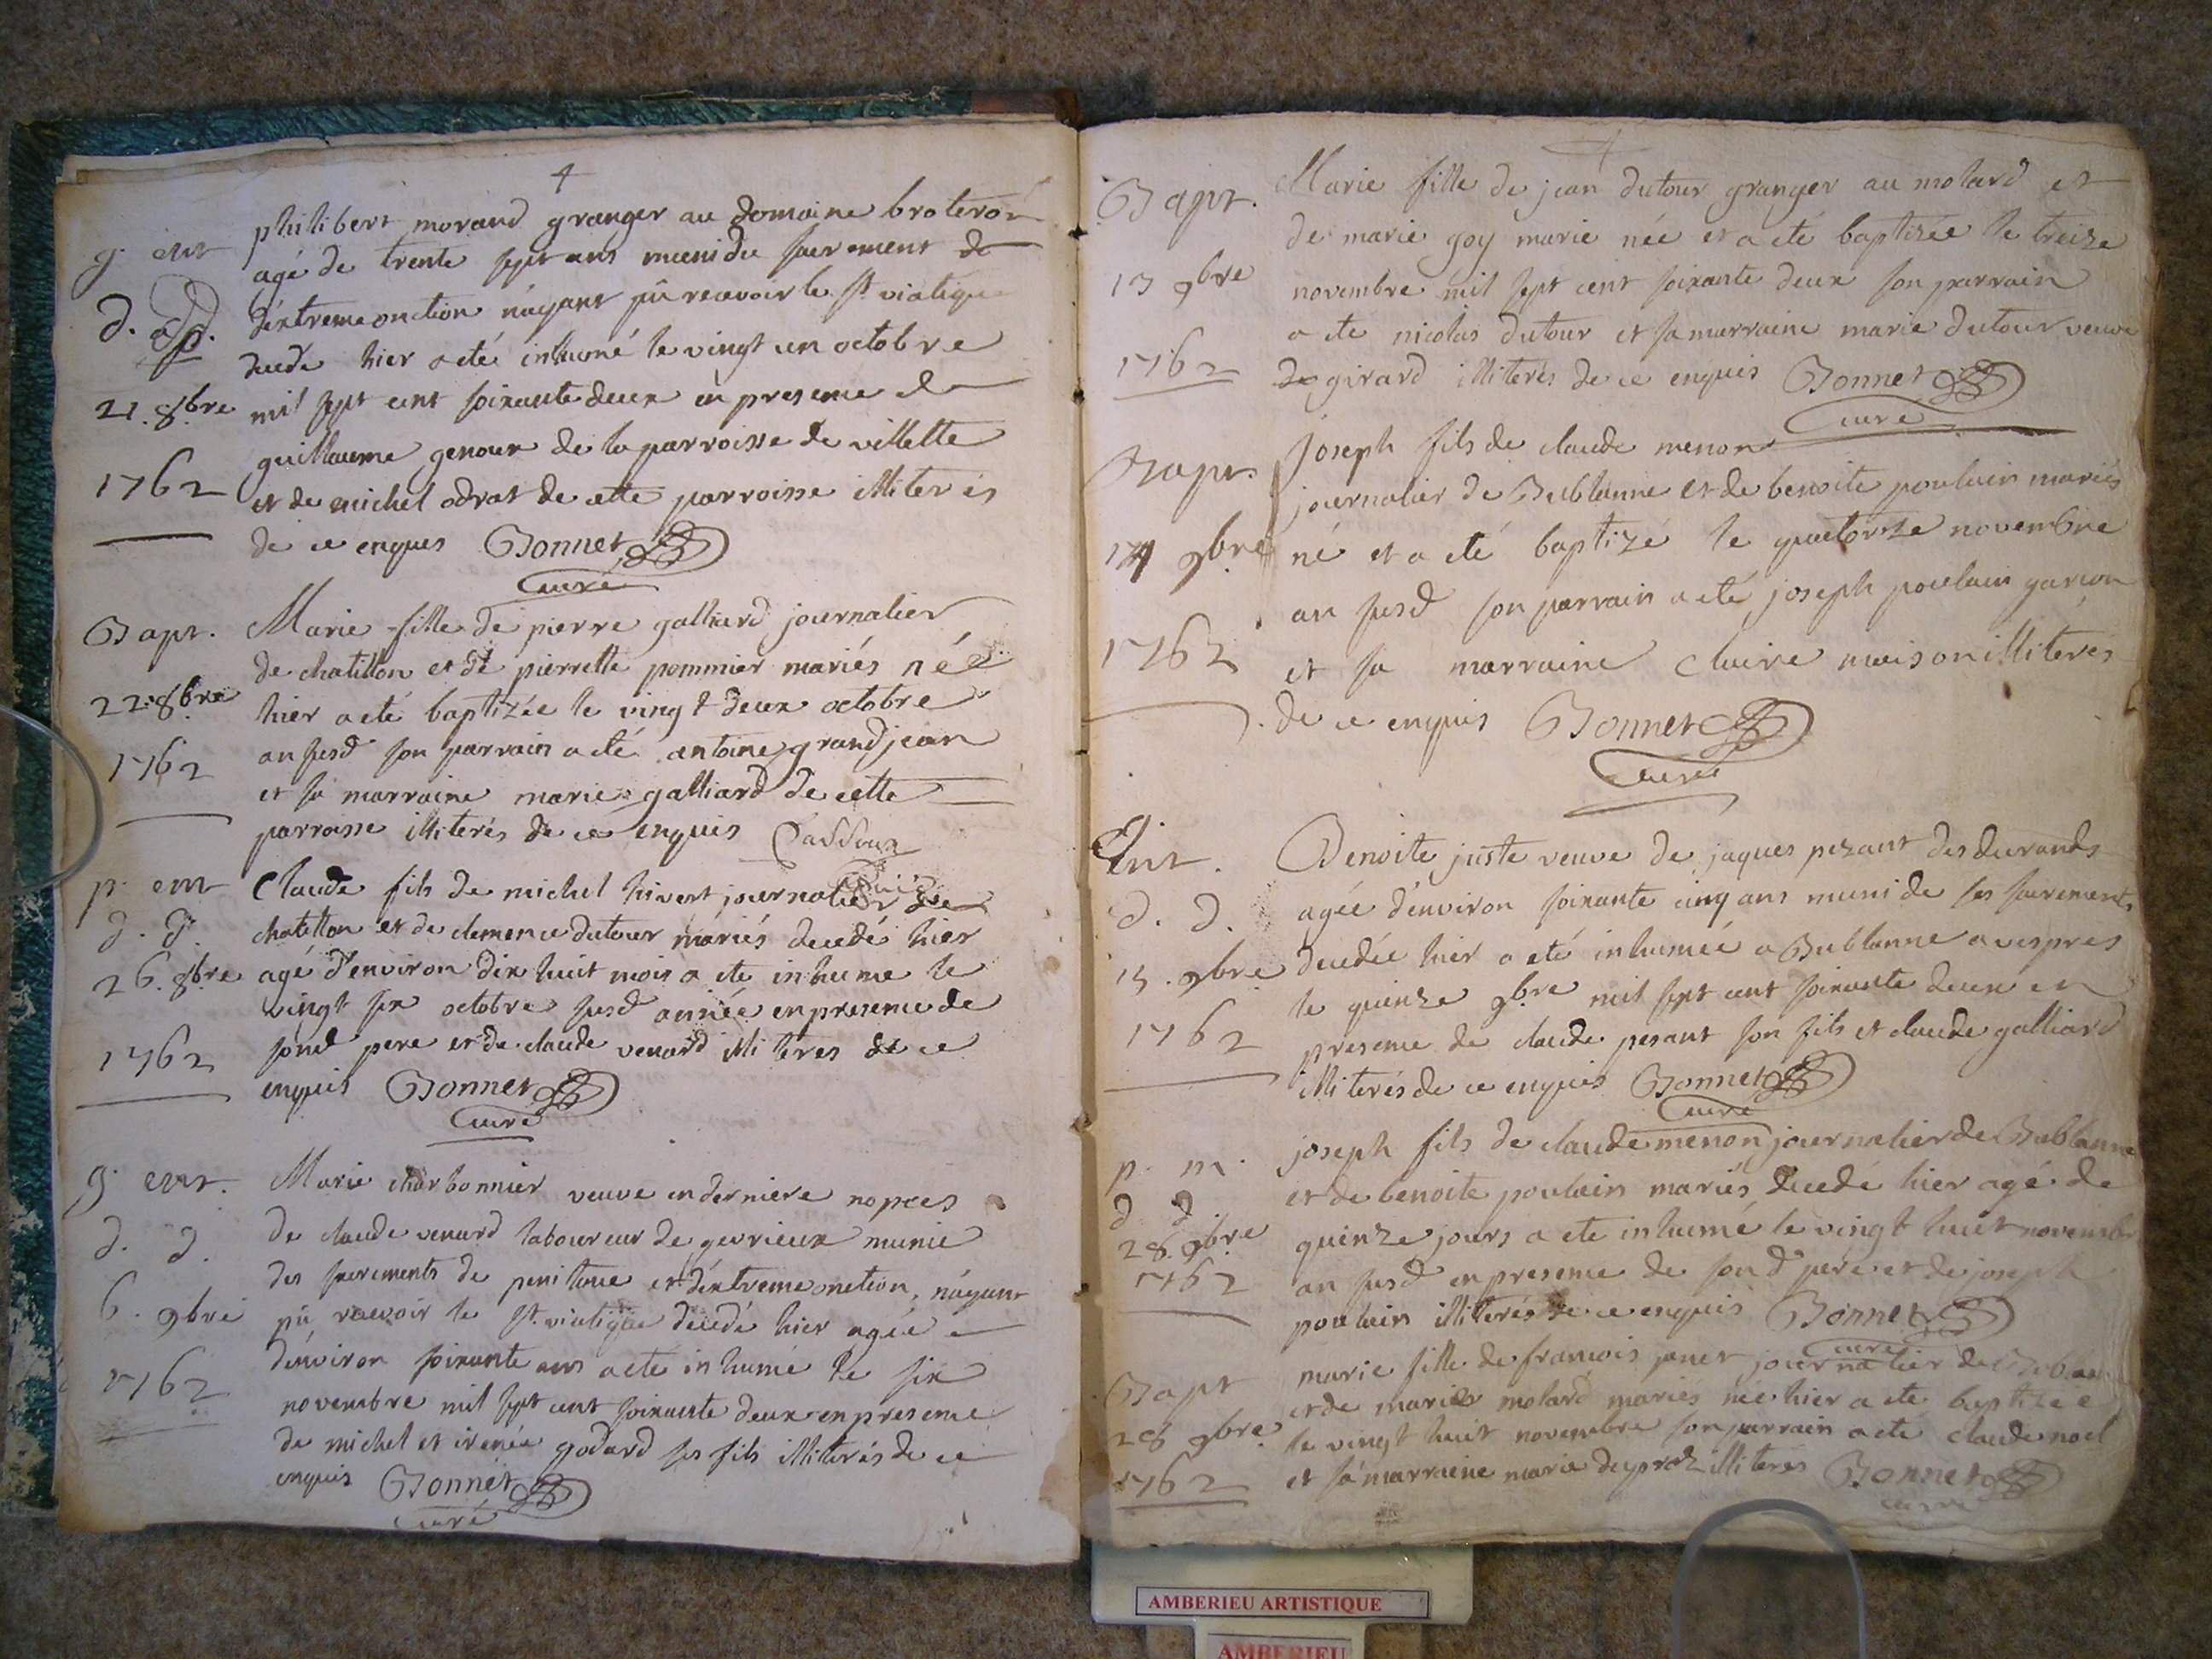 4
g. ent
d. d.
21. 8bre
1762
philibert morand granger au domaine broteron
agé de trente sept ans muni du sacrement de
d'extreme onction n'ayant pû recevoir le st viatique
decede hier a eté inhumé le vingt un octobre
mil sept cent soixante deux en presence de
guillaume genoux de la parroisse de villette
et de michel odrat de cette parroisse illiterés
de ce enquis Bonnet
curé
Bapt.
22. 8bre
1762
Marie fille de pierre galliard journalier
de chatillon et de pierrette pommier mariés née
hier a eté baptizée le vingt deux octobre
an susd son parrain a eté antoine grandjean
et sa marraine marie galliard de cette
parroisse illiterés de ce enquis
p. ent
d. d.
26. 8bre
1762
Claude fils de michel hivert journalier de
chatillon et de clemence dutour mariés decedé hier
agé d'environ dix huit mois a ete inhume le
vingt six octobre susd année en presence de
sond pere et de claude venard illiteres de ce
enquis Bonnet
curé
g. ent.
d. d.
6. 9bre
1762
Marie charbonnier veuve en derniere nopces
de claude venard laboureur de gevrieux munie
des sacrements de penitence et d'extreme onction, n'ayant
pû recevoir le st viatique decedé hier agée
d'environ soixante ans a eté inhumé le six
novembre mil sept cent soixante deux en presence
de michel et irenée godard ses fils illiterés de ce
enquis Bonnet
curé
4
Bapt.
13 9bre
1762
Marie fille de jean dutour granger au molard et
de marie goy marie née et a eté baptizée le treize
novembre mil sept cent soixante deux son parrain
a eté nicolas dutour et sa marraine marie dutour veuve
de girard illiterés de ce enquis Bonnet
curé
Bapt.
14 9bre
1762
Joseph fils de claude menon
journalier de Bublanne et de benoite poulain mariés
né et a eté baptizé le quatorze novembre
an susd son parrain a eté joseph poulain garcon
et sa marraine claire maison illiterés
de ce enquis Bonnet
curé
Ent.
d. d.
15. 9bre
1762
Benoite juste veuve de jaques pezant des durands
agée d'environ soixante cinq ans muni de ses sacrements
decedée hier a eté inhumée a Bublanne a vespres
le quinze 9bre mil sept cent soixante deux en
presence de claude pesant son fils et claude galliard
illiterés de ce enquis Bonnet
curé
p. m.
d d
28. 9bre
1762
joseph fils de claude menon journalier de Bublanne
et de benoite poulain mariés, decedé hier agé de
quinze jours a ete inhumé le vingt huit novembre
an susd en presence de sond pere et de joseph
poulain illiterés de ce enquis Bonnet
curé
Bapt
28 9bre
1762
marie fille de francois janet journalier de Bublan
et de marie molard mariés née hier a ete baptizée
le vingt huit novembre son parrain a eté claude noel
et sa marraine marie illiteres Bonnet
curé
AMBERIEU ARTISTIQUE
AMBERIEU